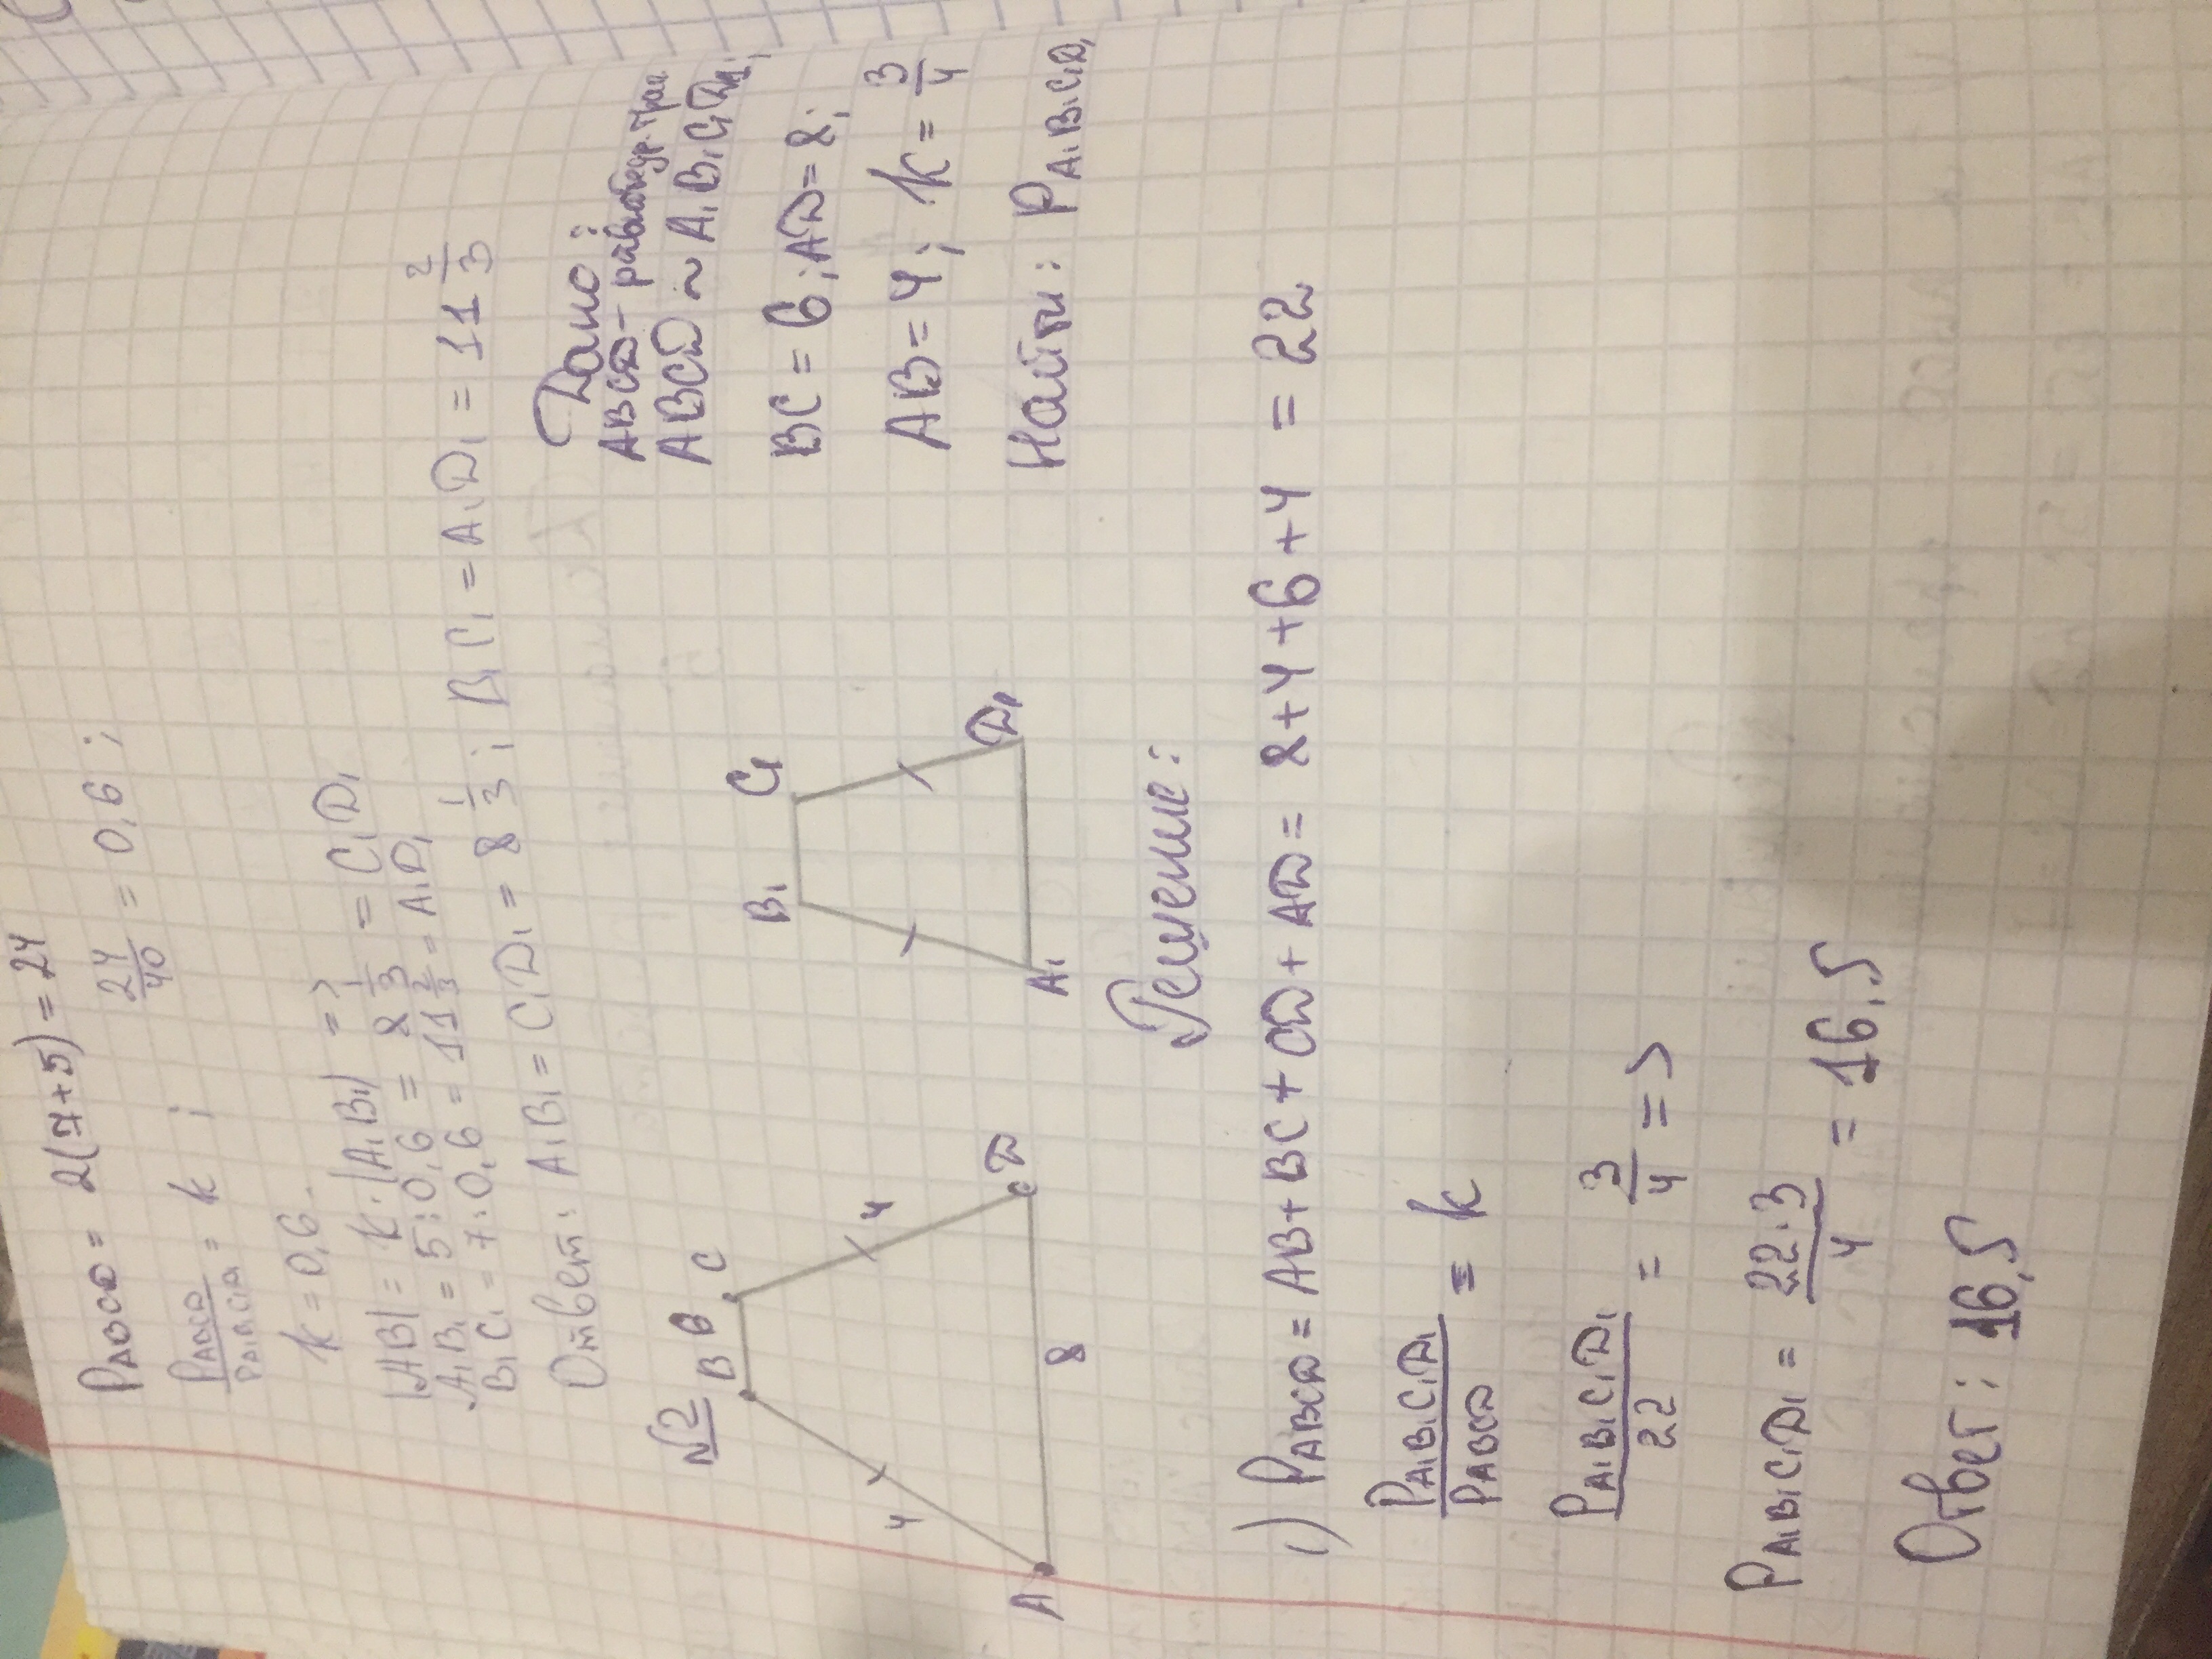 P ABCD = 2(7+5) = 24
P ABCD / P A1B1C1D1 = k ; 24/40 = 0,6 ;
k = 0,6.
|AB| = k · |A1B1| =>
A1B1 = 5 : 0,6 = 8 1/3 = C1D1
B1C1 = 7 : 0,6 = 11 2/3 = A1D1
Ответ: A1B1 = C1D1 = 8 1/3 ; B1C1 = A1D1 = 11 2/3
№2
B 6 C
4
4
A
D
8
B1
C1
A1
D1
Дано:
ABCD - равнобедр. трап
ABCD ~ A1B1C1D1;
BC = 6; AD = 8;
AB = 4; k = 3/4
Найти: P A1B1C1D1
Решение:
1) P ABCD = AB + BC + CD + AD = 8+4+6+4 = 22
P A1B1C1D1 / P ABCD = k
P A1B1C1D1 / 22 = 3/4 =>
P A1B1C1D1 = 22·3 / 4 = 16,5
Ответ: 16,5